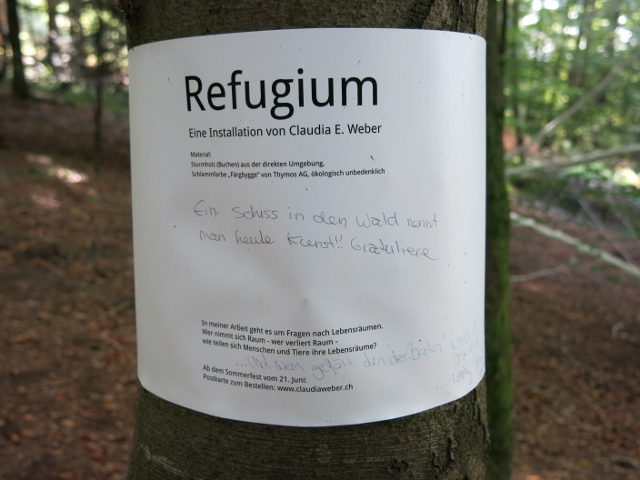 Refugium
Eine Installation von Claudia E. Weber
Material:
Sturmholz (Buchen) aus der direkten Umgebung.
Schlammfarbe „Färgbygge" von Thymos AG, ökologisch unbedenklich
Ein Schiss in den Wald nennt
man heute Kunst!! Gratuliere
In meiner Arbeit geht es um Fragen nach Lebensräumen.
Wer nimmt sich Raum - wer verliert Raum -
wie teilen sich Menschen und Tiere ihre Lebensräume?
... Und wem gehört den der
Ab dem Sommerfest vom 21. Juni:
Postkarte zum Bestellen: www.claudiaweber.ch